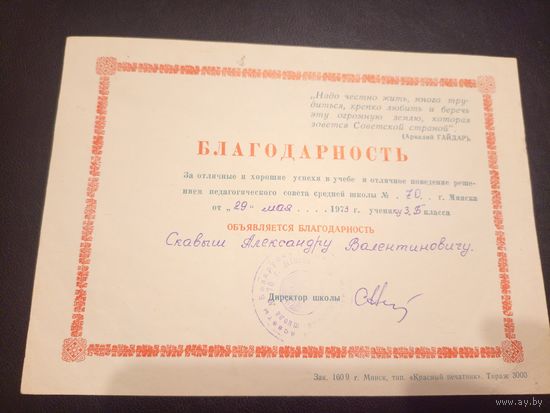 „Надо честно жить, много тру-
диться, крепко любить и беречь
эту огромную землю, которая
зовется Советской страной".
(Аркадий ГАЙДАР).
БЛАГОДАРНОСТЬ
За отличные и хорошие успехи в учебе и отличное поведение реше-
нием педагогического совета средней школы № 70 г. Минска
от „29" мая 1973 г. ученику 3 „Б" класса
ОБЪЯВЛЯЕТСЯ БЛАГОДАРНОСТЬ
Скавыш Александру Валентиновичу.
Директор школы
Зак. 1609 г. Минск, тип. «Красный печатник». Тираж 3000
www.ay.by